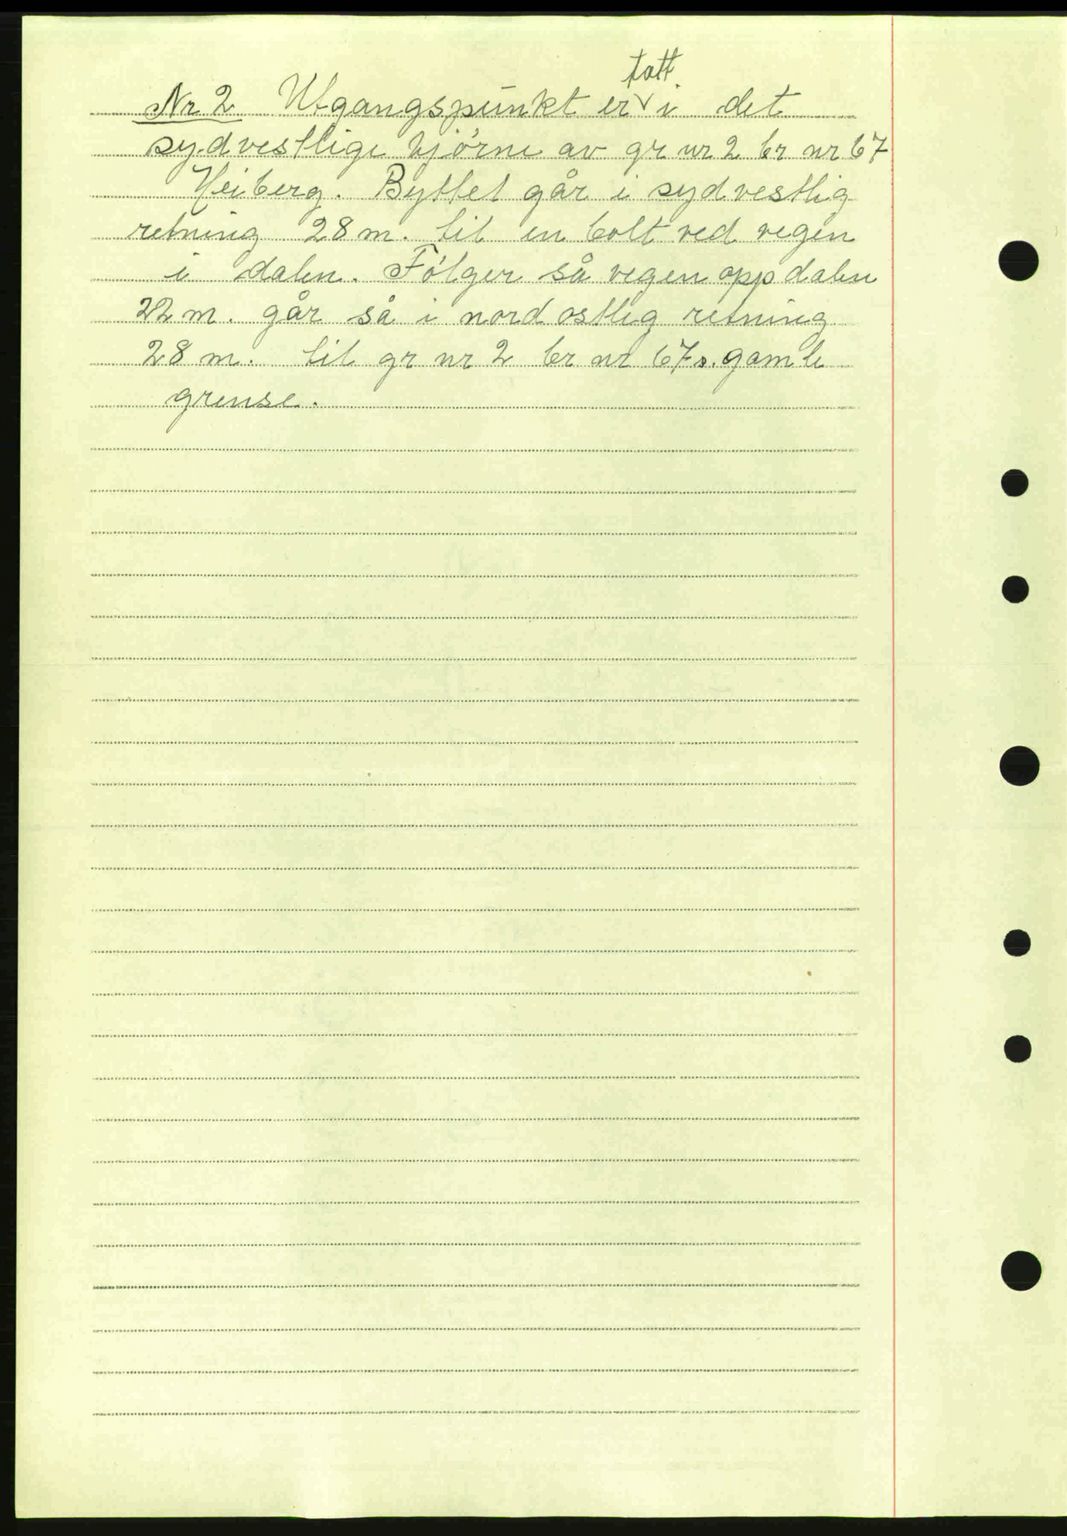 Nr 2 Utgangspunkt er tatt i det
sydvestlige hjørne av gr nr 2 br nr 67
Heiberg. Byttet går i sydvestlig
retning 28 m. til en bolt ved vegen
i dalen. Følger så vegen opp dalen
22 m. går så i nordostlig retning
28 m. til gr nr 2 br nr 67s. gamle
grense.